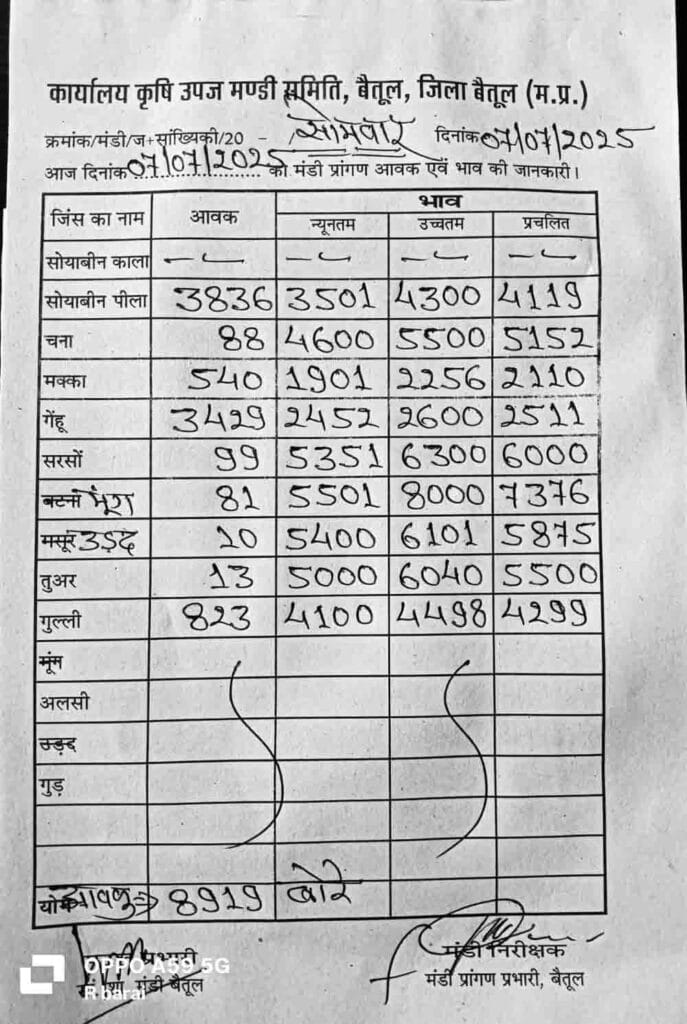 कार्यालय कृषि उपज मण्डी समिति, बैतूल, जिला बैतूल (म.प्र.)
क्रमांक/मंडी/ज+सांख्यिकी/20 - सोमवार दिनांक 07/07/2025
आज दिनांक 07/07/2025 को मंडी प्रांगण आवक एवं भाव की जानकारी।
जिंस का नाम आवक भाव
न्यूनतम उच्चतम प्रचलित
सोयाबीन काला — — — —
सोयाबीन पीला 3836 3501 4300 4119
चना 88 4600 5500 5152
मक्का 540 1901 2256 2110
गेंहू 3429 2452 2600 2511
सरसों 99 5351 6300 6000
बटना मूंग 81 5501 8000 7376
मसूर उड़द 10 5400 6101 5875
तुअर 13 5000 6040 5500
गुल्ली 823 4100 4498 4299
मूंग
अलसी
उड़द
गुड़
8919 बोरे
प्रभारी मंडी निरीक्षक
मंडी बैतूल मंडी प्रांगण प्रभारी, बैतूल
OPPO A59 5G
R barai